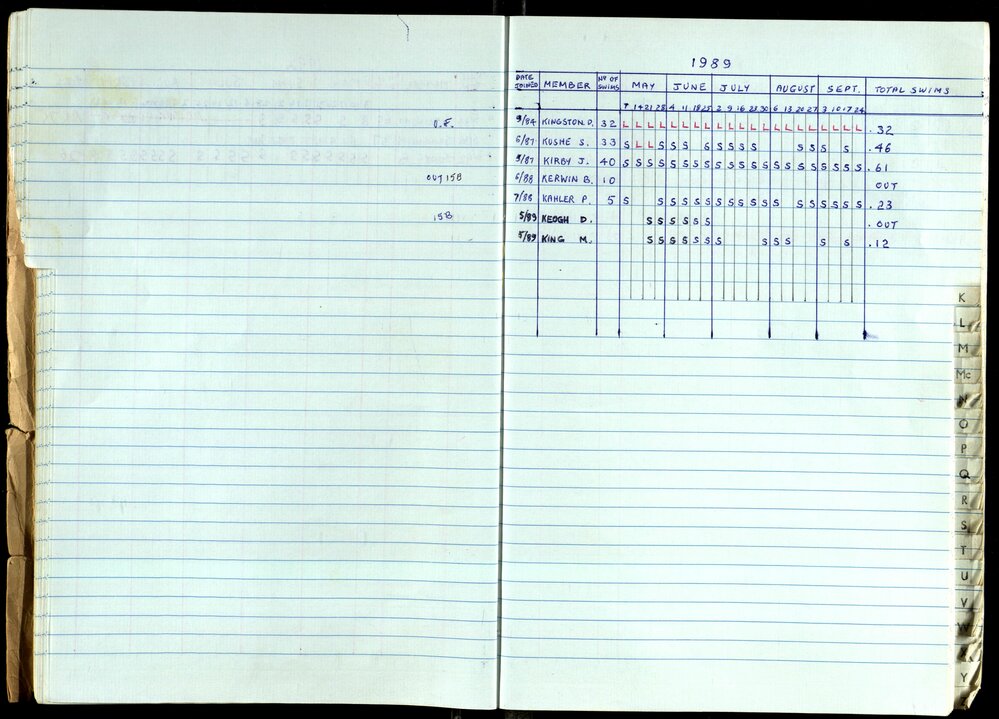 O.F.
OUT 15B
15B
1989
DATE JOINED MEMBER Nº OF SWIMS MAY JUNE JULY AUGUST SEPT. TOTAL SWIMS
7 14 21 28 4 11 18 25 2 9 16 23 30 6 13 20 27 3 10 17 24
9/84 KINGSTON D. 32 L L L L L L L L L L L L L L L L L L L L L . 32
6/87 KUSHE S. 33 S L L S S S S S S S S S S S S . 46
5/87 KIRBY J. 40 S S S S S S S S S S S S S S S S S S S S S . 61
6/88 KERWIN B. 10 OUT
7/88 KAHLER P. 5 S S S S S S S S S S S S S S S S S S . 23
5/89 KEOGH D. S S S S S S . OUT
5/89 KING M. S S S S S S S S S S S S . 12
K
L
M
Mc
N
O
P
Q
R
S
T
U
V
W
Y